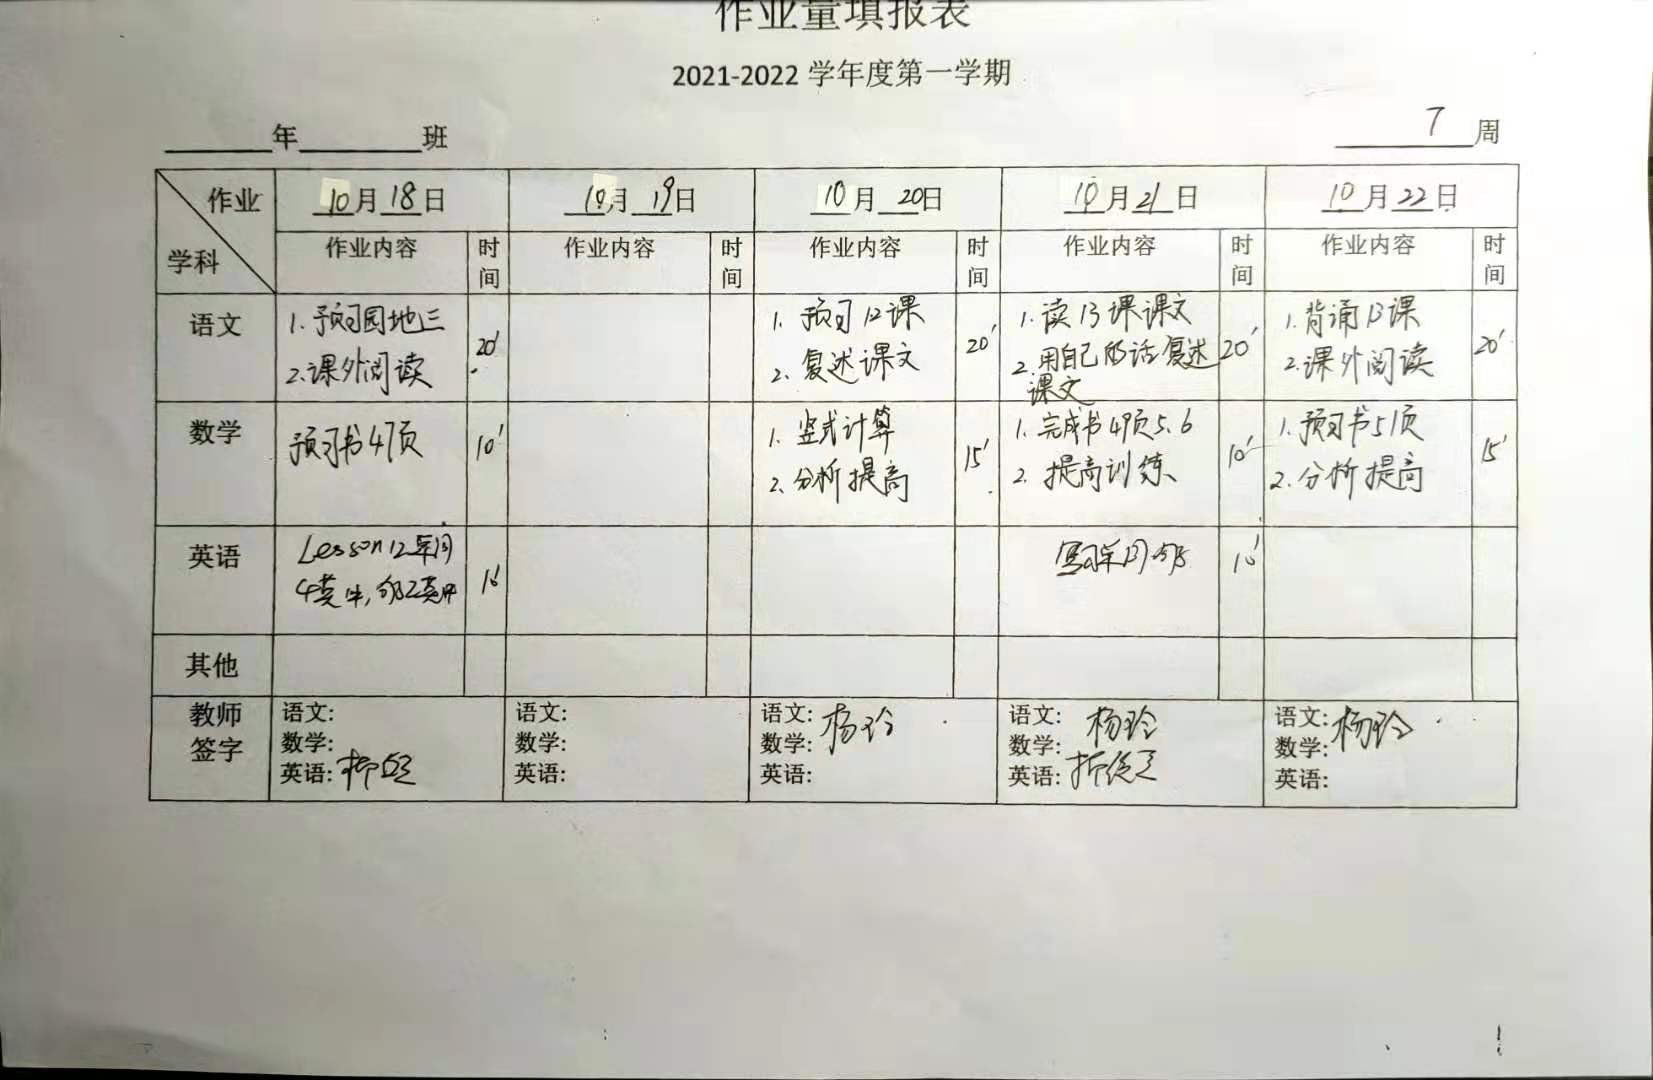 作业量填报表
2021-2022 学年度第一学期
年 班
7 周
作业
学科
10月18日
10月19日
10月20日
10月21日
10月22日
作业内容
时间
作业内容
时间
作业内容
时间
作业内容
时间
作业内容
时间
语文
1.预习园地三
2.课外阅读
20'
1. 预习12课
2. 复述课文
20'
1.读13课课文
2.用自己的话复述
课文
20'
1.背诵13课
2.课外阅读
20'
数学
预习书47页
10'
1. 竖式计算
2. 分析提高
15'
1. 完成书49页5.6
2. 提高训练
10'
1.预习书51页
2.分析提高
15'
英语
Lesson 12单词
4英1中,句2英1中
10'
写单词句
10'
其他
教师
签字
语文:
数学:
英语:
语文:
数学:
英语:
语文: 杨玲
数学:
英语:
语文: 杨玲
数学:
英语:
语文: 杨玲
数学:
英语: